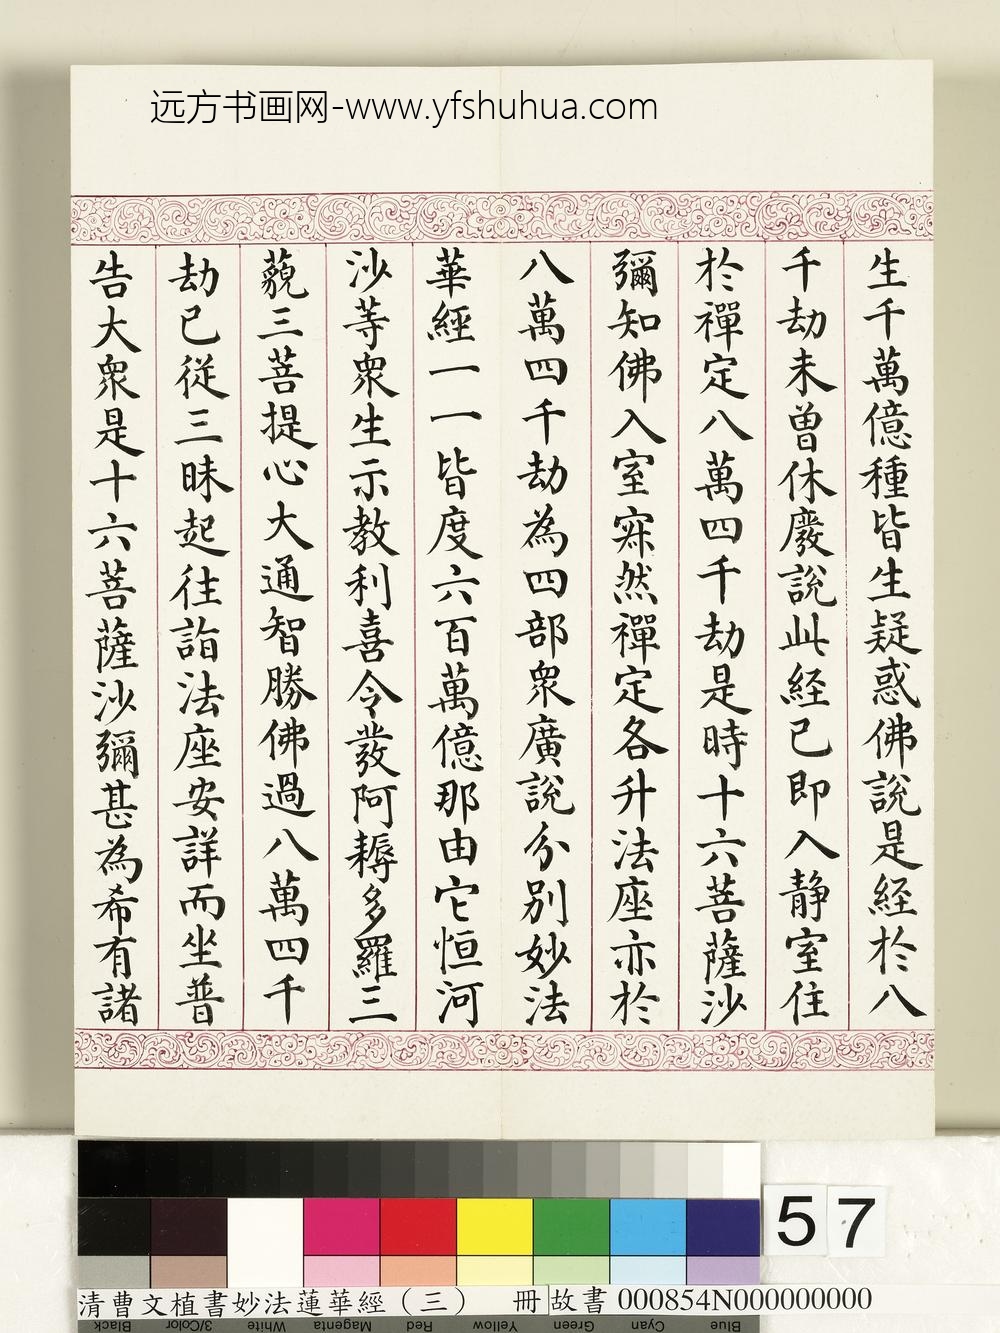 远方书画网-www.yfshuhua.com
生千萬億種皆生疑惑佛說是經於八
千劫未曾休廢說此経已即入静室住
於禪定八萬四千劫是時十六菩薩沙
彌知佛入室寂然禪定各升法座亦於
八萬四千劫為四部衆廣說分別妙法
華經一一皆度六百萬億那由它恒河
沙等衆生示教利喜令發阿耨多羅三
藐三菩提心大通智勝佛過八萬四千
劫已從三昧起往詣法座安詳而坐普
告大衆是十六菩薩沙彌甚為希有諸
57
清曹文植書妙法蓮華經（三） 冊 故書 000854N000000000
Black 3/Color White Magenta Red Yellow Green Cyan Blue